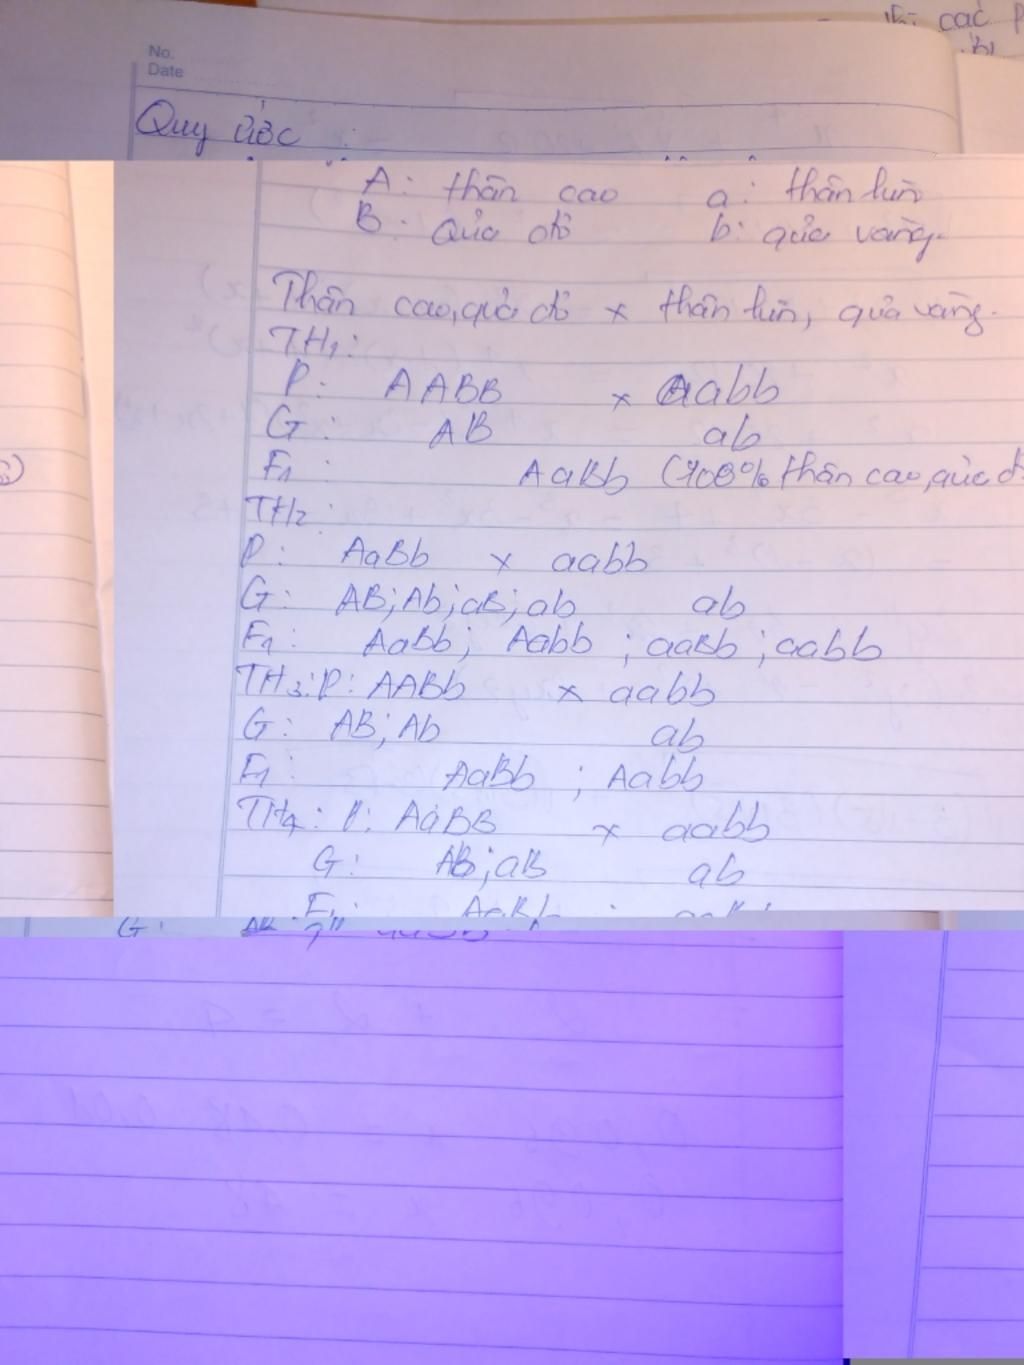 các
No.
Date
Quy ước :
A: thân cao a: thân lùn
B: Quả đỏ b: quả vàng.
Thân cao, quả đỏ x thân lùn, quả vàng.
TH1:
P: AABB x aabb
G: AB ab
F1: AaBb (100% thân cao, quả
TH2:
P: AaBb x aabb
G: AB; Ab; aB; ab ab
F1: AaBb; Aabb ; aaBb ; aabb
TH3: P: AABb x aabb
G: AB; Ab ab
F1: AaBb ; Aabb
TH4: P: AaBB x aabb
G: AB; aB ab
F1: AaBb ;
G: